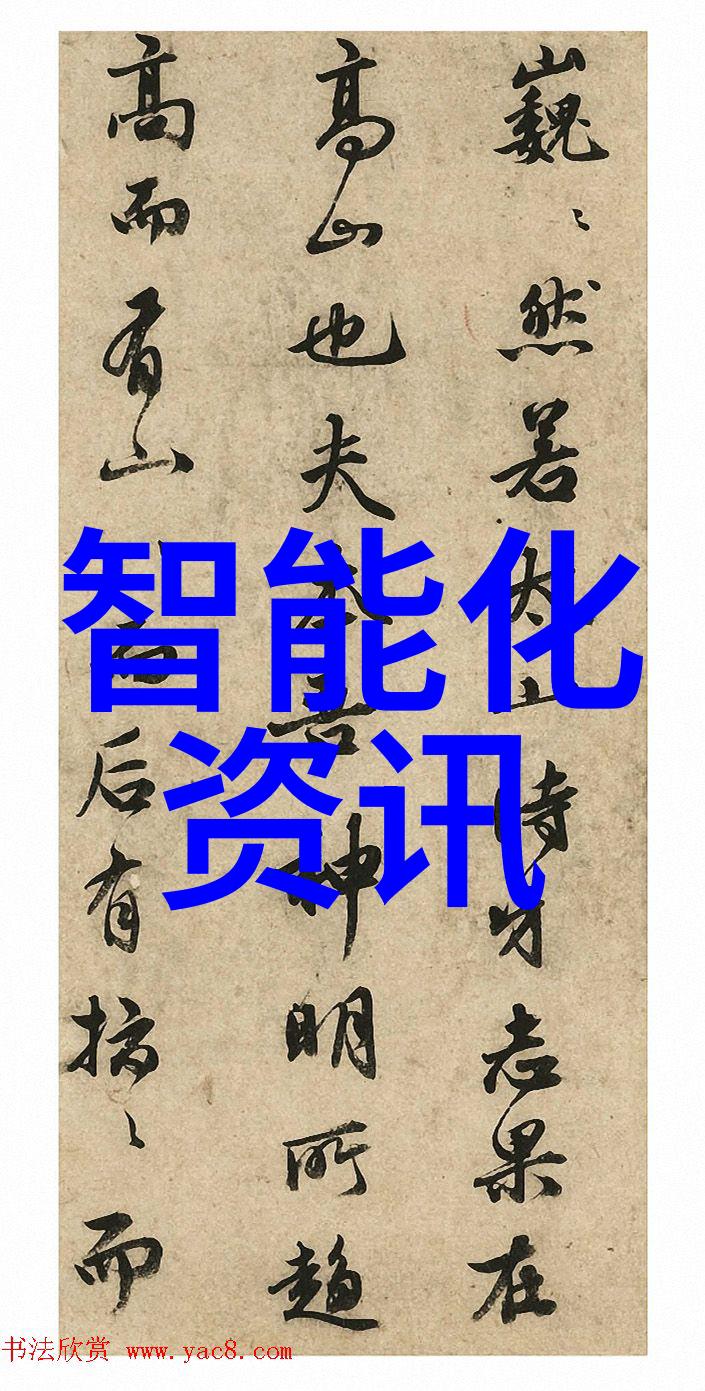 巍〻然若太山時志果在
高山也夫神明所趨
高而有山而后有〻而
智能化
资讯
书法欣赏 www.yac8.com